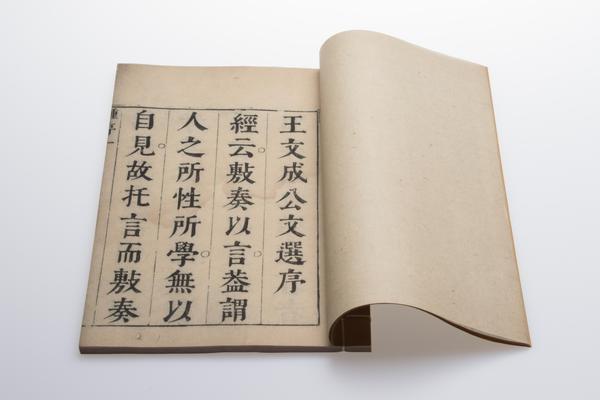 王文成公文選序
經云敷奏以言葢謂
人之所性所學無以
自見故托言而敷奏